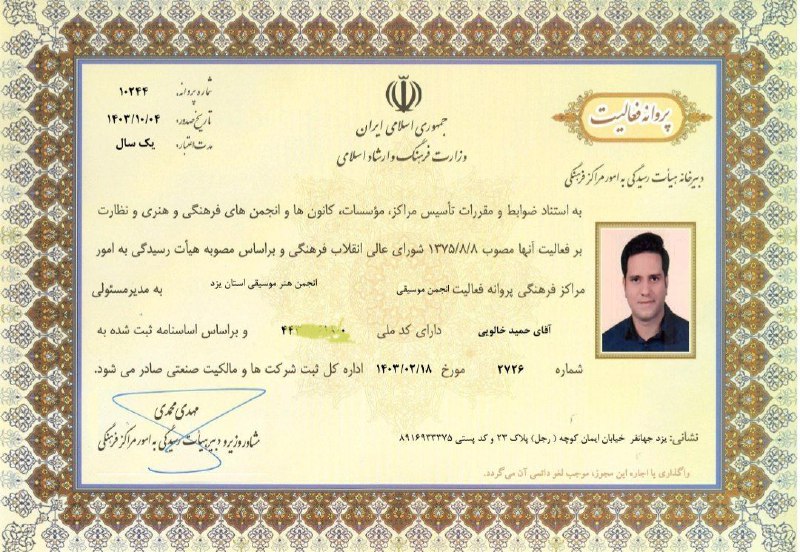 پروانه فعالیت
جمهوری اسلامی ایران
وزارت فرهنگ و ارشاد اسلامی
شماره پروانه: ۱۰۲۴۴
تاریخ صدور: ۱۴۰۳/۱۰/۰۴
مدت اعتبار: یک سال
دبیرخانه هیأت رسیدگی به امور مراکز فرهنگی
به استناد ضوابط و مقررات تأسیس مراکز، مؤسسات، کانون ها و انجمن های فرهنگی و هنری و نظارت
بر فعالیت آنها مصوب ۱۳۷۵/۸/۸ شورای عالی انقلاب فرهنگی و براساس مصوبه هیأت رسیدگی به امور
مراکز فرهنگی پروانه فعالیت انجمن موسیقی انجمن هنر موسیقی استان یزد به مدیرمسئولی
آقای حمید خالویی دارای کد ملی و براساس اساسنامه ثبت شده به
شماره ۲۷۲۶ مورخ ۱۴۰۳/۰۲/۱۸ اداره کل ثبت شرکت ها و مالکیت صنعتی صادر می شود.
مهدی محمدی
مشاور وزیر و دبیر هیأت رسیدگی به امور مراکز فرهنگی
نشانی: یزد جهانفر خیابان ایمان کوچه ( رجل) پلاک ۲۳ و کد پستی ۸۹۱۶۹۳۳۳۷۵
واگذاری یا اجاره این مجوز، موجب لغو دائمی آن می‌گردد.